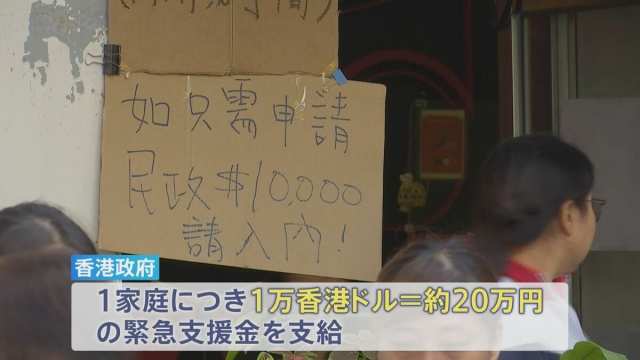 如只需申請
民政$10,000
請入內!
香港政府
1家庭につき1万香港ドル=約20万円
の緊急支援金を支給